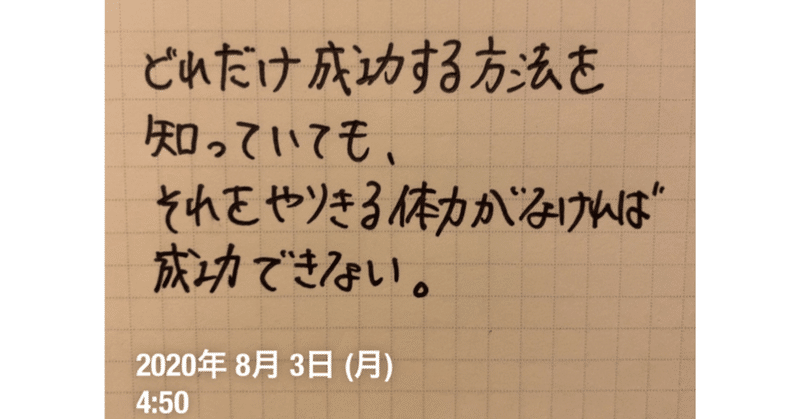 どれだけ成功する方法を
知っていても、
それをやりきる体力がなければ
成功できない。
2020年 8月 3日 (月)
4:50